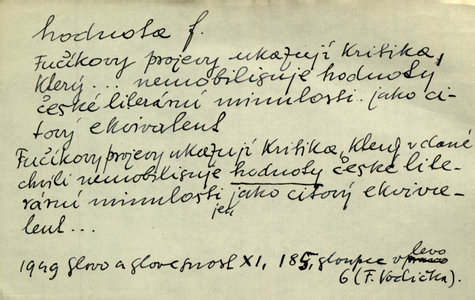 hodnota f.
Fučíkovy projevy ukazují kritika,
který ... nemobilisuje hodnoty
české literární minulosti jako ci-
tový ekvivalent
Fučíkovy projevy ukazují kritika, který v dané
chvíli nemobilisuje hodnoty české lite-
rární minulosti jen jako citový ekviva-
lent ...
1949 Slovo a slovesnost XI, 185, sloupec vlevo
6 (F. Vodička).